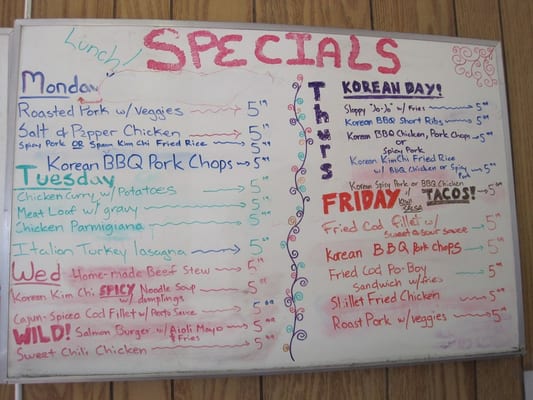 Lunch!
SPECIALS
Monday
Roasted Pork w/ Veggies 5
Salt & Pepper Chicken 5
Spicy Pork OR Spam Kim Chi Fried Rice 5
Korean BBQ Pork Chops 5
Tuesday
Chicken Curry w/ Potatoes 5
Meat Loaf w/ gravy 5
Chicken Parmigiana 5
Italian Turkey lasagna 5
Wed
Home-made Beef Stew 5
Korean Kim Chi SPICY Noodle Soup 5
w/ dumplings
Cajun-Spiced Cod Fillet w/ Pesto Sauce 5
WILD! Salmon Burger w/ Aioli Mayo 5
& Fries
Sweet Chili Chicken 5
Thurs
KOREAN DAY!
Sloppy "Jo-Jo" w/ Fries 5
Korean BBQ Short Ribs 5
Korean BBQ Chicken, Pork Chops or 5
Spicy Pork
Korean KimChi Fried Rice
w/ BBQ Chicken or Spicy Pork 5
Korean Spicy Pork or BBQ Chicken
TACOS! 5
w/ Salsa
FRIDAY
Fried Cod Fillet w/
Sweet & Sour Sauce 5
Korean BBQ Pork Chops 5
Fried Cod Po-Boy
Sandwich w/ fries 5
Skillet Fried Chicken 5
Roast Pork w/ veggies 5